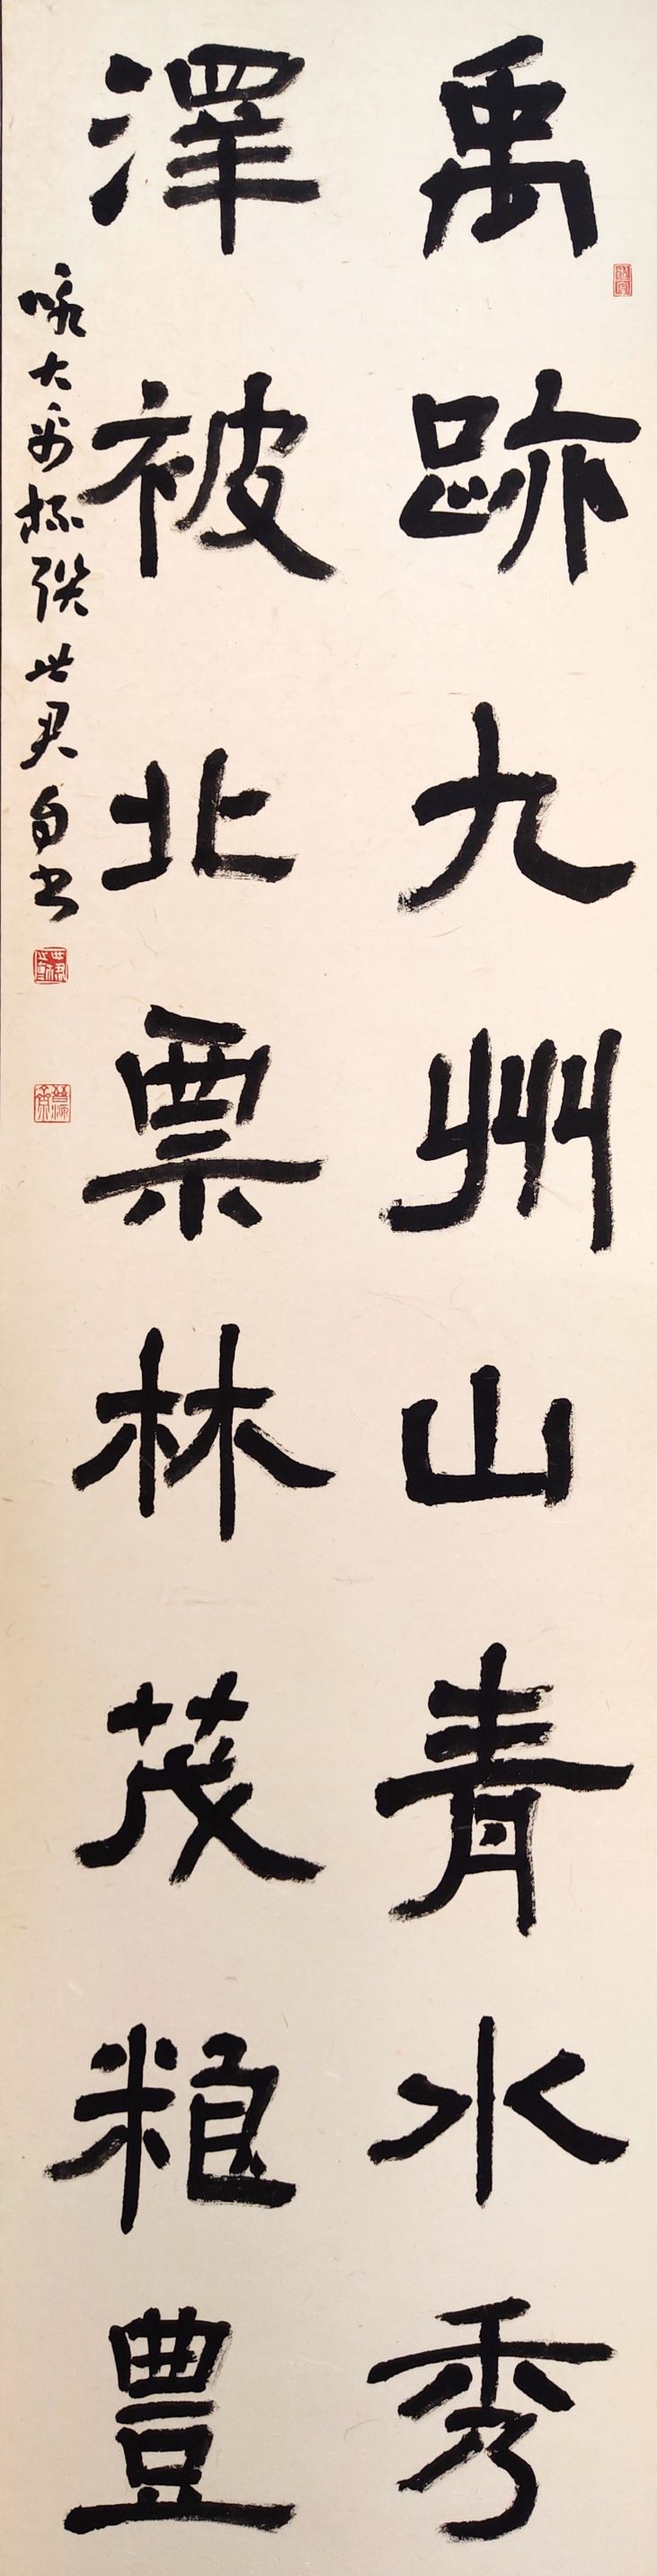 禹跡九州山青水秀
澤被北票林茂粮豊
咏大禹楹联世君自书